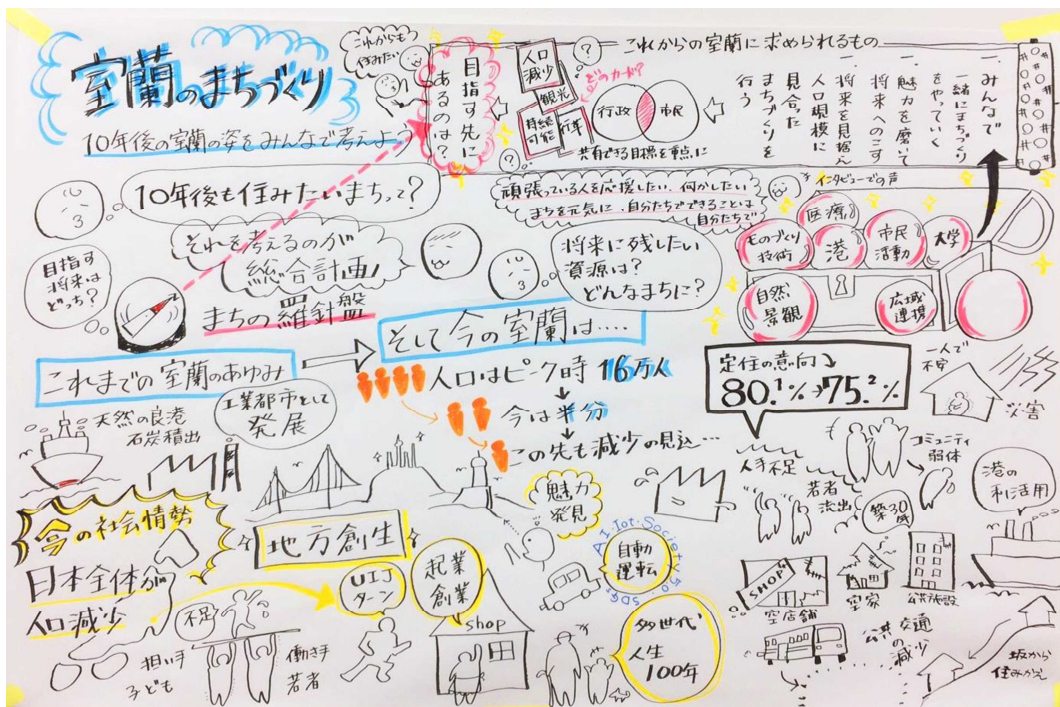 室蘭のまちづくり
10年後の室蘭の姿をみんなで考えよう
これからも
住みたい
目指す先に
あるのは?
人口
減少
観光
持続
可能
行革
どのカード?
行政
市民
共有できる目標を重点に
これからの室蘭に求められるもの
一、みんなで
一緒にまちづくり
をやっていく
一、魅力を磨いて
将来へのこす
一、将来を見据え
人口規模に
見合った
まちづくりを
行う
10年後も住みたいまちって?
それを考えるのが
総合計画
まちの羅針盤
目指す
将来は
どっち?
頑張っている人を応援したい、何かしたい
まちを元気に、自分たちでできることは
自分たちで
インタビューでの声
将来に残したい
資源は?
どんなまちに?
医療
ものづくり
技術
港
市民
活動
大学
自然
景観
広域
連携
これまでの室蘭のあゆみ
天然の良港
石炭積出
工業都市として
発展
そして今の室蘭は....
人口はピーク時 16万人
今は半分
この先も減少の見込…
定住の意向
80.1%→75.2%
一人で
不安
災害
人手不足
若者
流出
コミュニティ
弱体
港の
利活用
築30年
SHOP
空店舗
空家
公共施設
公共交通
の減少
坂から
住みかえ
今の社会情勢
日本全体が
人口減少
地方創生
不足
担い手
子ども
働き手
若者
UIJ
ターン
起業
創業
shop
魅力
発見
AI・Iot・Society5.0・SDGs
自動
運転
多世代
人生
100年